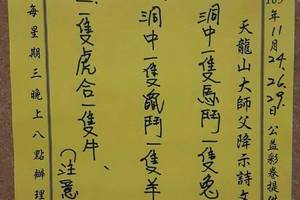 年11月24.26.29.日 公益彩卷提供
天龍山大師父降示詩文
洞中一隻馬鬥一隻兔
洞中一隻鼠鬥一隻羊
隻虎合一隻牛.
(注意
每星期三晚上八點辦理